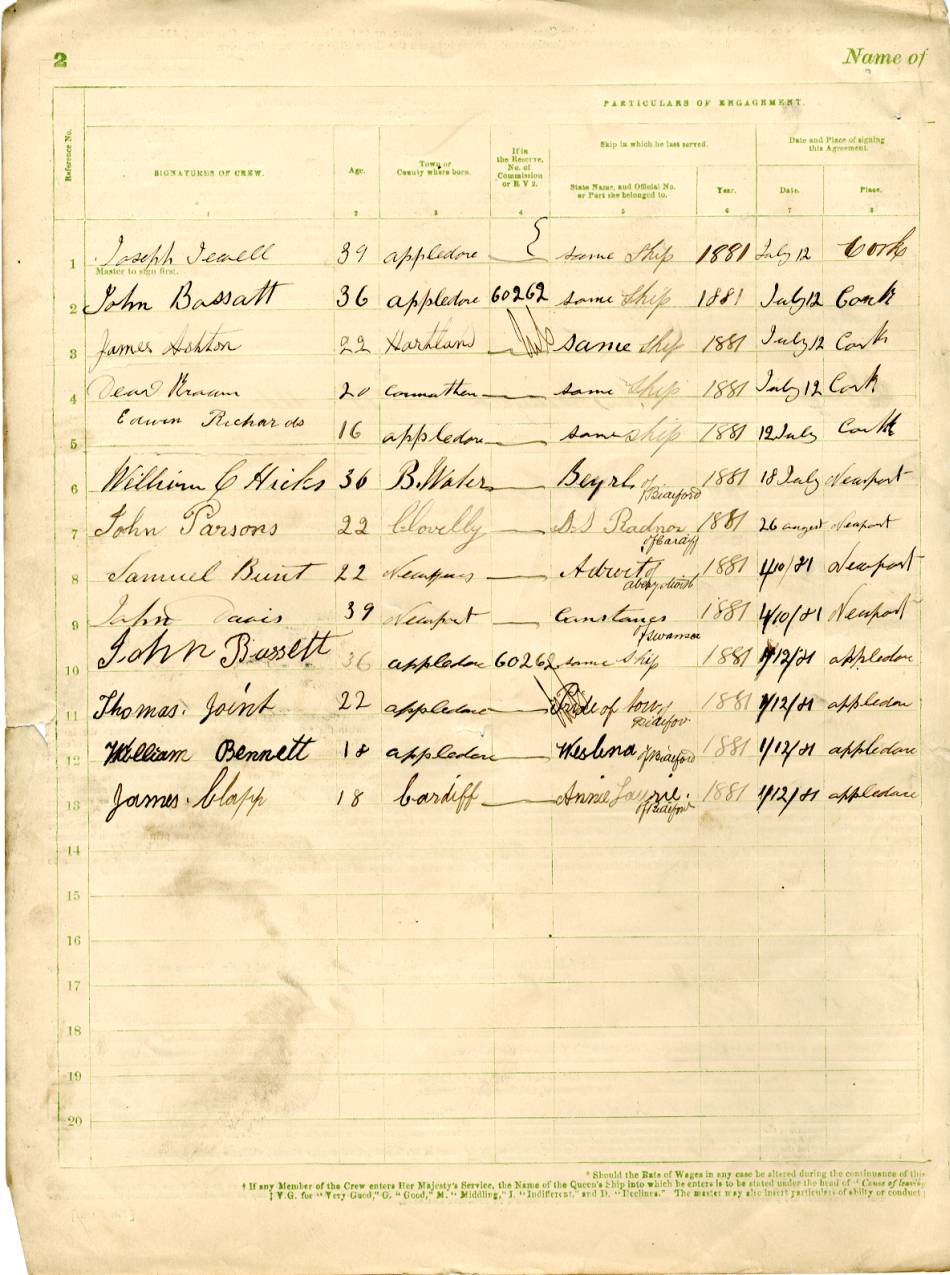 2
Name of
PARTICULARS OF ENGAGEMENT.
Reference No.
SIGNATURES OF CREW.
Age.
Town or
County where born.
If in
the Reserve,
No. of
Commission
or R V 2.
Ship in which he last served.
State Name, and Official No.
or Port she belonged to.
Year.
Date and Place of signing
this Agreement.
Date.
Place.
1 2 3 4 5 6 7 8
1 Joseph Jewell 39 appledore same Ship 1881 July 12 Cork
Master to sign first.
2 John Bassatt 36 appledore 60262 same Ship 1881 July 12 Cork
3 James Ashton 22 Hartland same Ship 1881 July 12 Cork
4 20 same Ship 1881 July 12 Cork
5 Edwin Richards 16 appledore same ship 1881 12 July Cork
6 William C Hicks 36 B. Water Beyrl of Bideford 1881 18 July Newport
7 John Parsons 22 Clovelly S.S Radnor of Cardiff 1881 26 august Newport
8 Samuel Bunt 22 1881 4/10/81 Newport
9 John Davis 39 Newport of Swansea 1881 4/10/81 Newport
10 John Bassett 36 appledore 60262 same ship 1881 1/12/81 appledore
11 Thomas. Joint 22 appledore Pride of 1881 1/12/81 appledore
12 William Bennett 18 appledore of Bideford 1881 1/12/81 appledore
13 James. Clapp 18 Cardiff Annie of Bideford 1881 1/12/81 appledore
14
15
16
17
18
19
20
* Should the Rate of Wages in any case be altered during the continuance of this
† If any Member of the Crew enters Her Majesty's Service, the Name of the Queen's Ship into which he enters is to be stated under the head of "Cause of leaving
‡ V.G. for "Very Good," G. "Good," M. "Middling," I. "Indifferent," and D. "Declines." The master may also insert particulars of ability or conduct